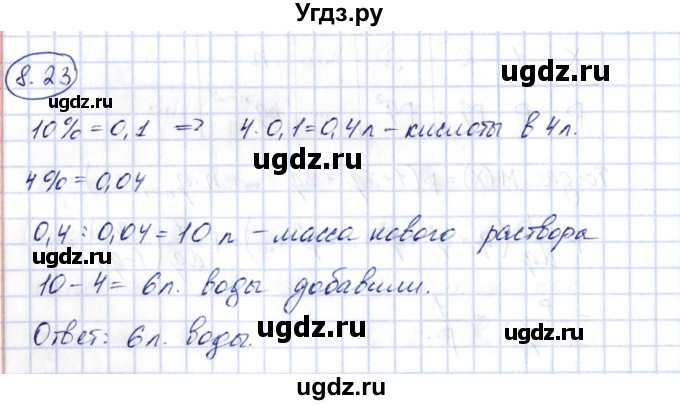 Угдз.ру
8.23
ugdz.ru ugdz.ru
10% = 0,1 => 4·0,1=0,4л – кислоты в 4л.
ugdz.ru ugdz.ru
4% = 0,04
0,4 : 0,04 = 10 л – масса нового раствора
ugdz.ru ugdz.ru
10 – 4 = 6л. воды добавили.
ugdz.ru ugdz.ru
Ответ: 6л. воды.
ugdz.ru
ugdz.ru